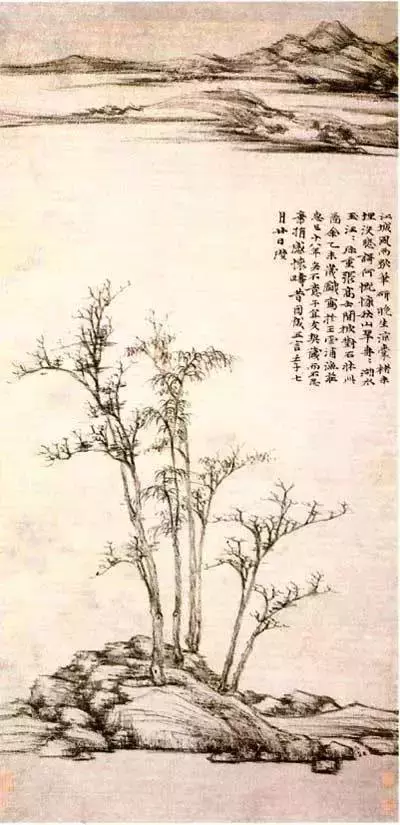 江城風雨歇筆研晚生涼囊楮未
埋沒悲謌何慨慷秋山翠冉々湖水
玉汪々珍重張高士閒披對石牀此
圖余乙未歲戲寫於王雲浦漁莊
忽已十八年矣不意子宜友契藏而不忍
棄捐感懷疇昔因成五言壬子七
月廿日瓚